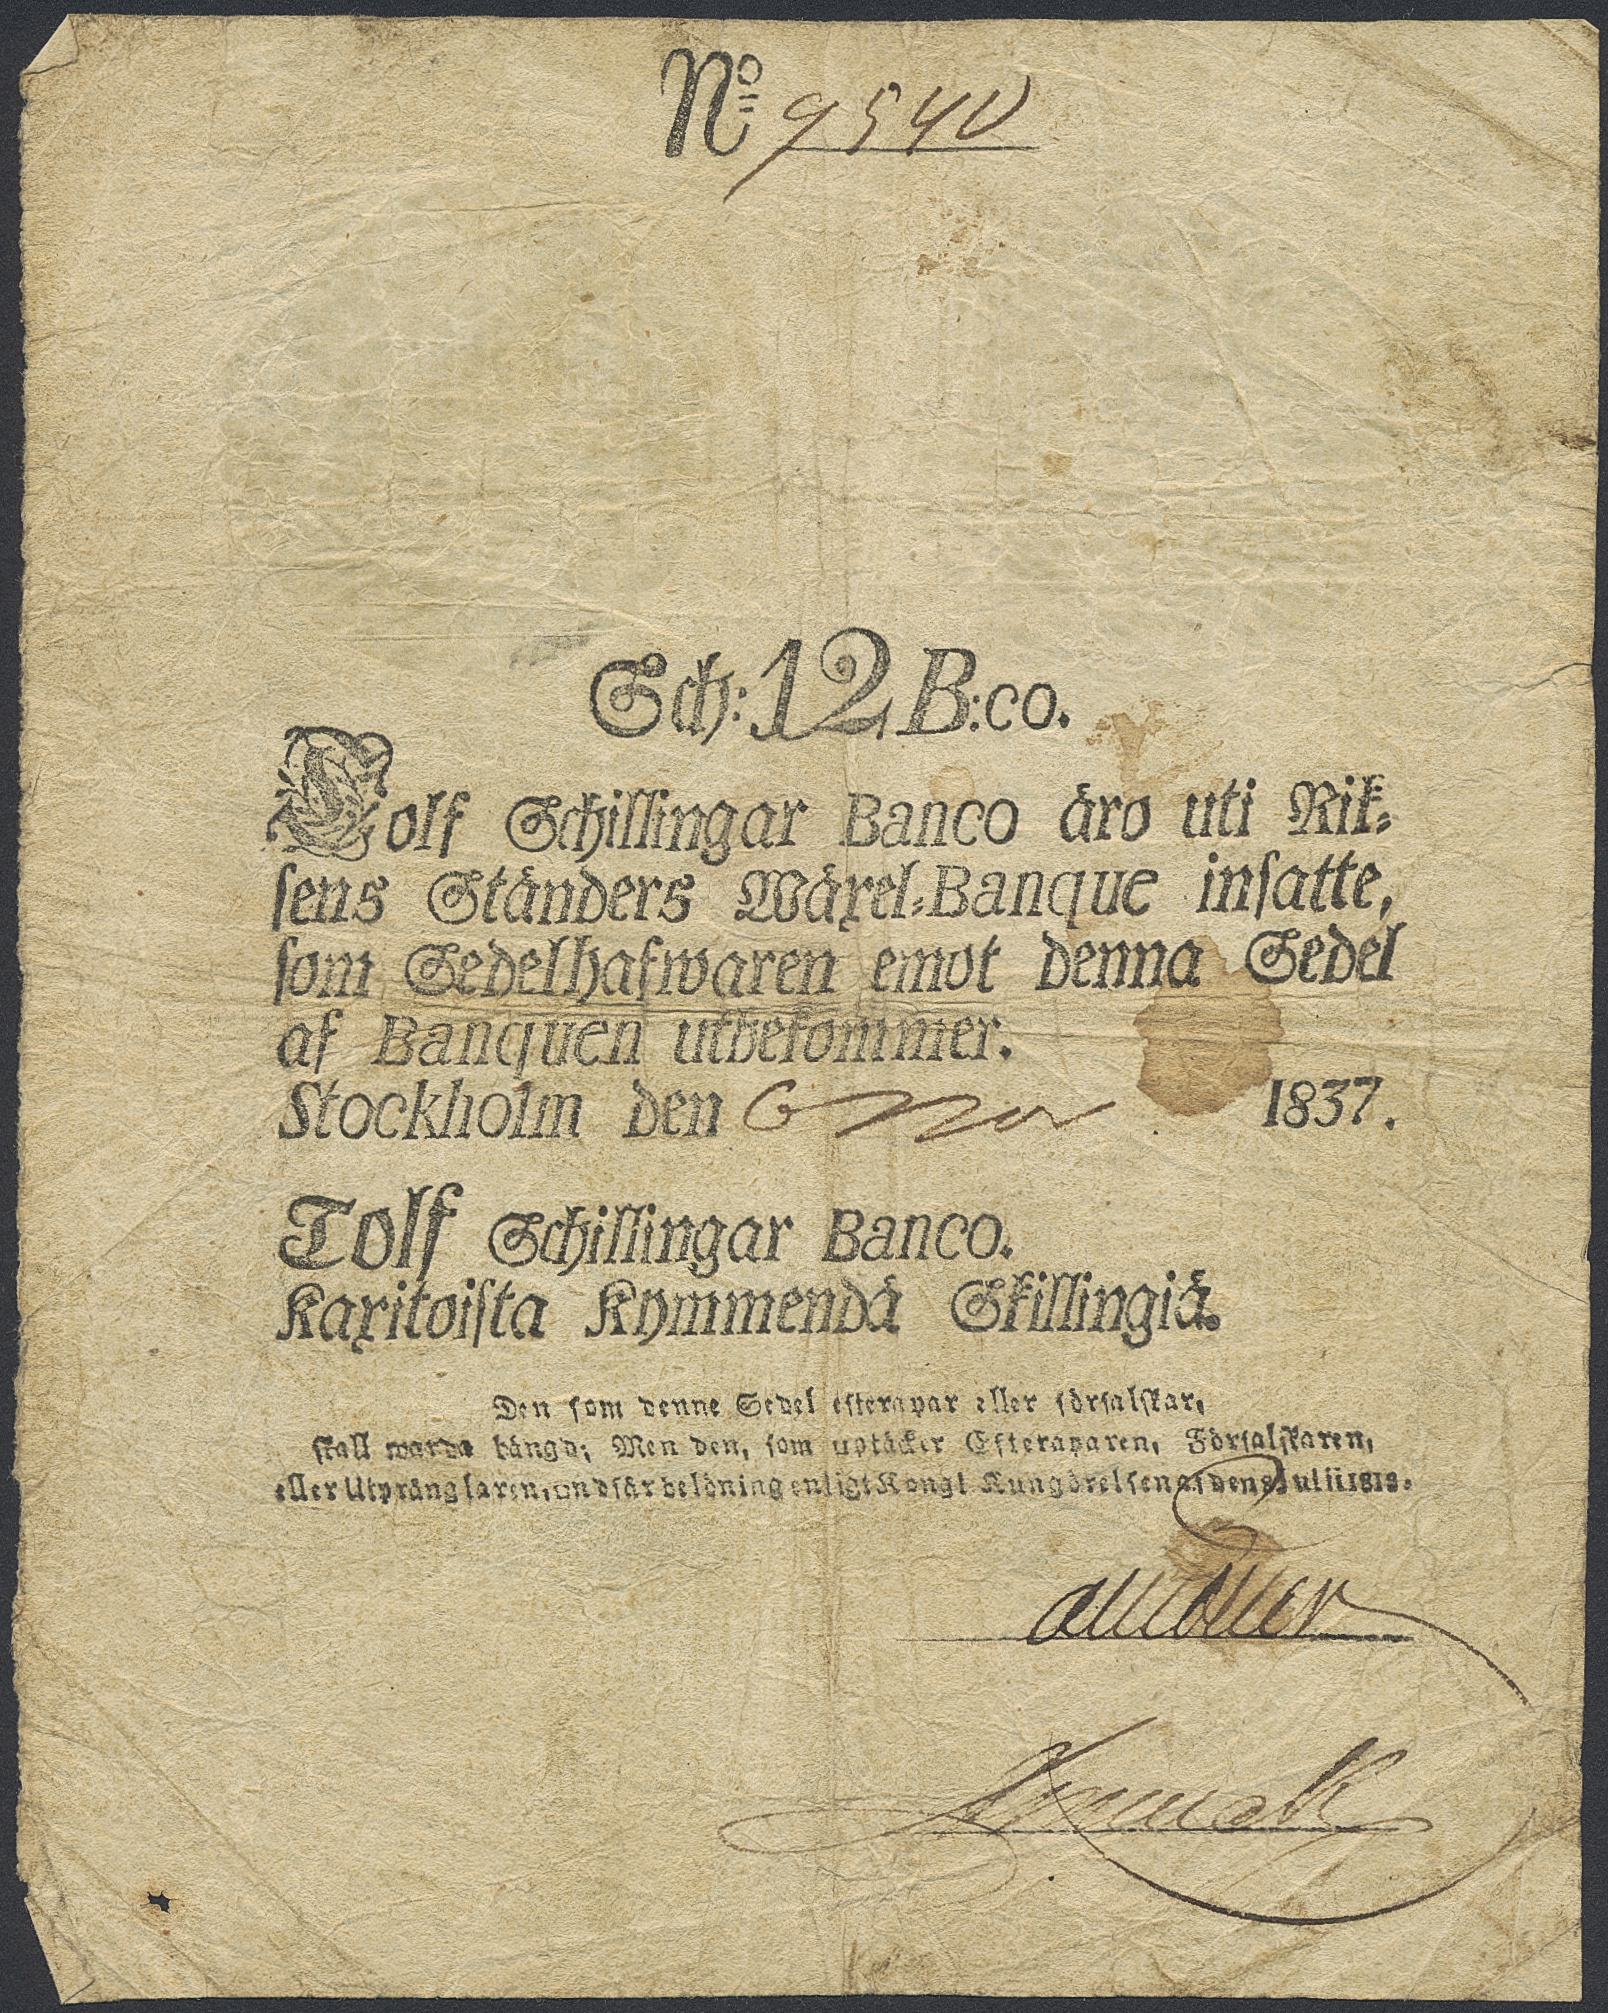 No 9540
Sch: 12 B:co.
Tolf Schillingar Banco äro uti Rik=
sens Ständers Wäxel=Banque insatte,
som Sedelhafwaren emot denna Sedel
af Banquen utbekommer.
Stockholm den 6 Nov 1837.
Tolf Schillingar Banco.
Kaxitoista Kymmendä Skillingiä.
Den som denne Sedel efterapar eller förfalskar,
skall warda hängd; Men den, som uptäcker Efteraparen, Förfalskaren,
eller Utprånglaren, undfår belöning enligt Kongl Kungörelsen af den 8 Julii 1818.